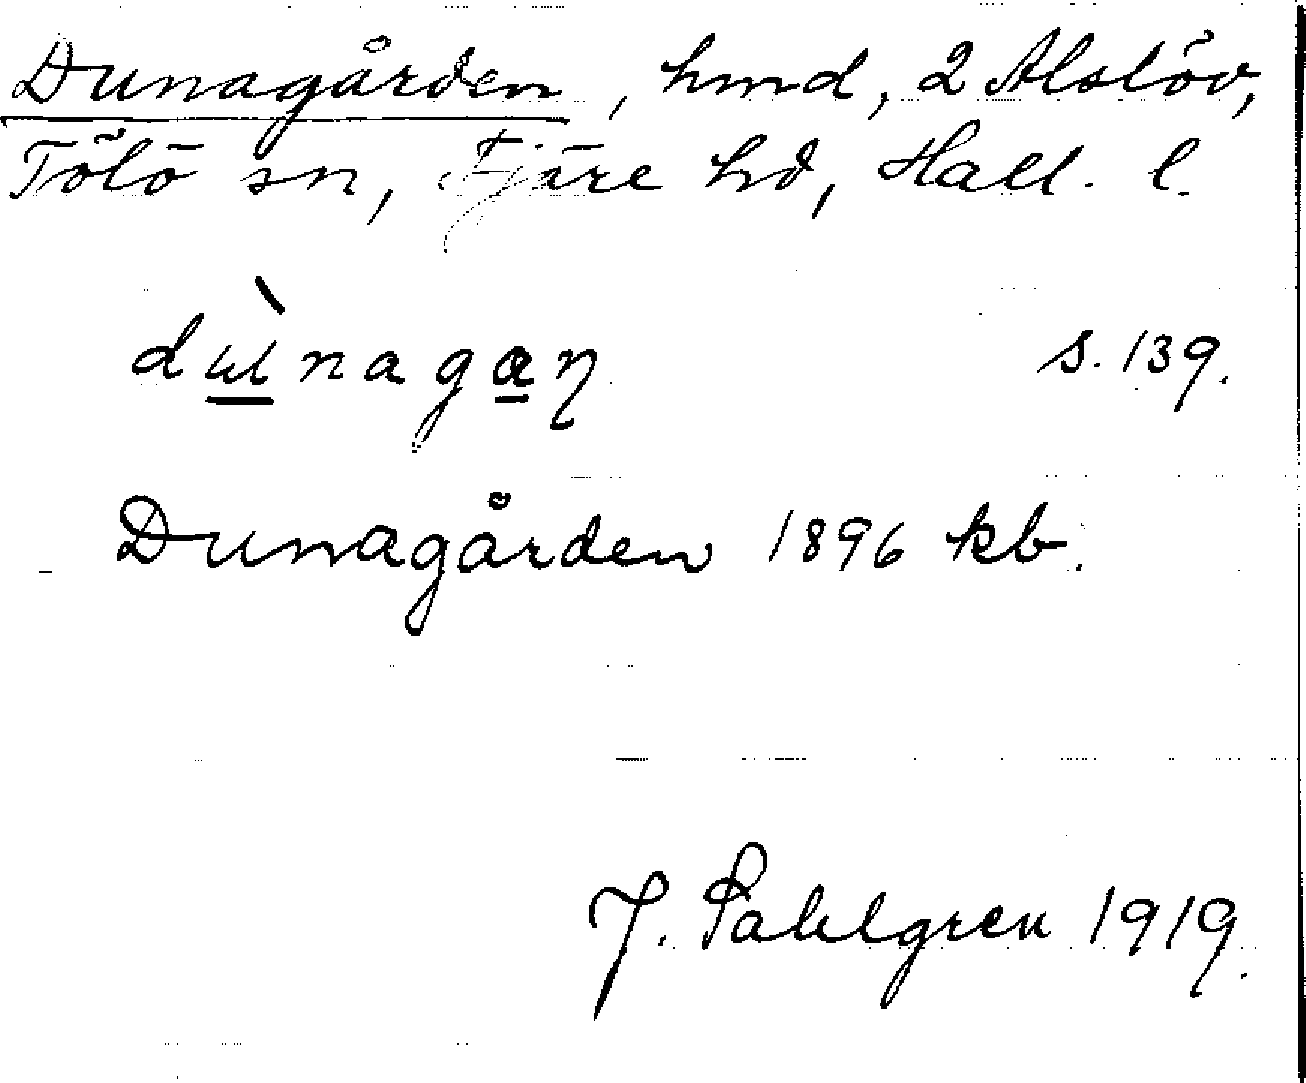 Dunagården, hmd, 2 Alslöv,
Tölö sn, Fjäre hd, Hall. l.
dùnagaŋ s. 139.
Dunagården 1896 kb.
J. Sahlgren 1919.